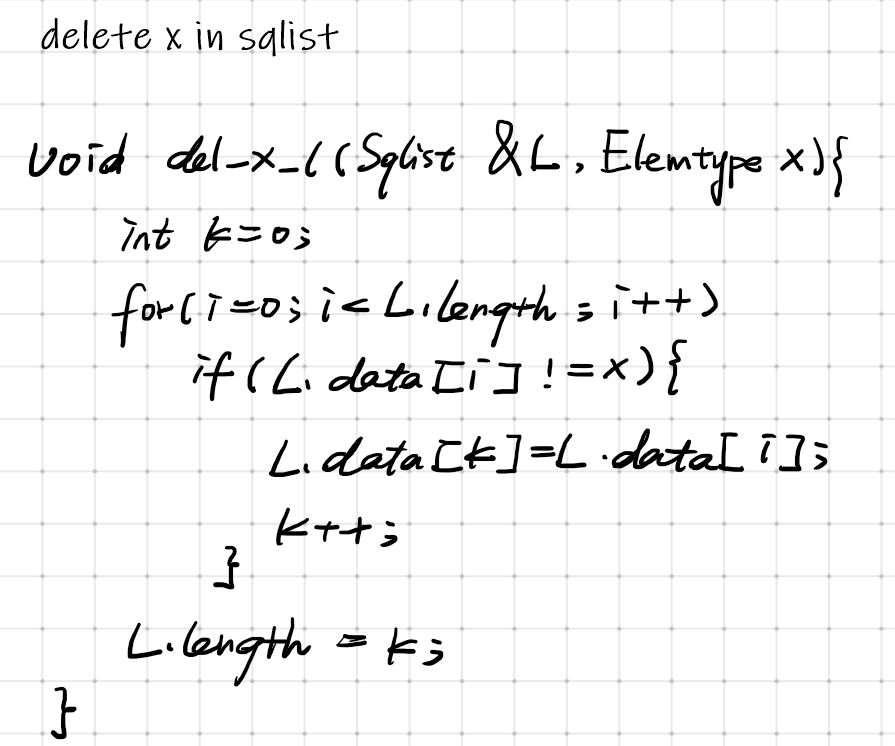 delete x in sqlist
void del-x-1(Sqlist &L, Elemtype x){
int k=0;
for(i=0; i<L.length; i++)
if(L.data[i]!=x){
L.data[k]=L.data[i];
k++;
}
L.length = k;
}